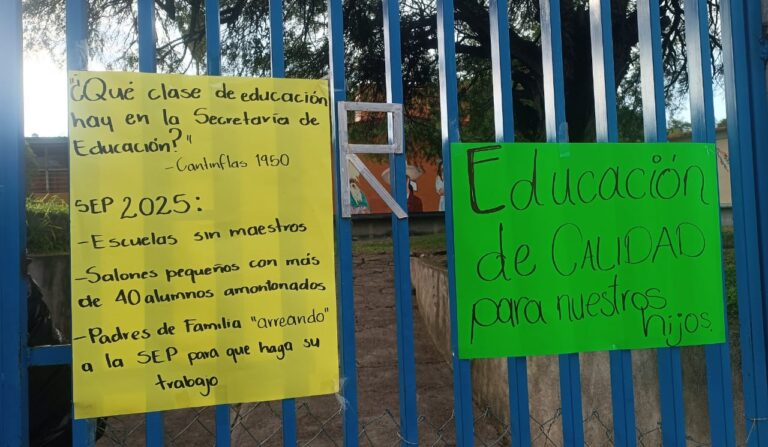 "¿Qué clase de educación
hay en la Secretaría de
Educación?"
- Cantinflas 1950
SEP 2025:
- Escuelas sin maestros
- Salones pequeños con más
de 40 alumnos amontonados
- Padres de Familia "arreando"
a la SEP para que haga su
trabajo
R
Educación
de CALIDAD
para nuestros
hijos.